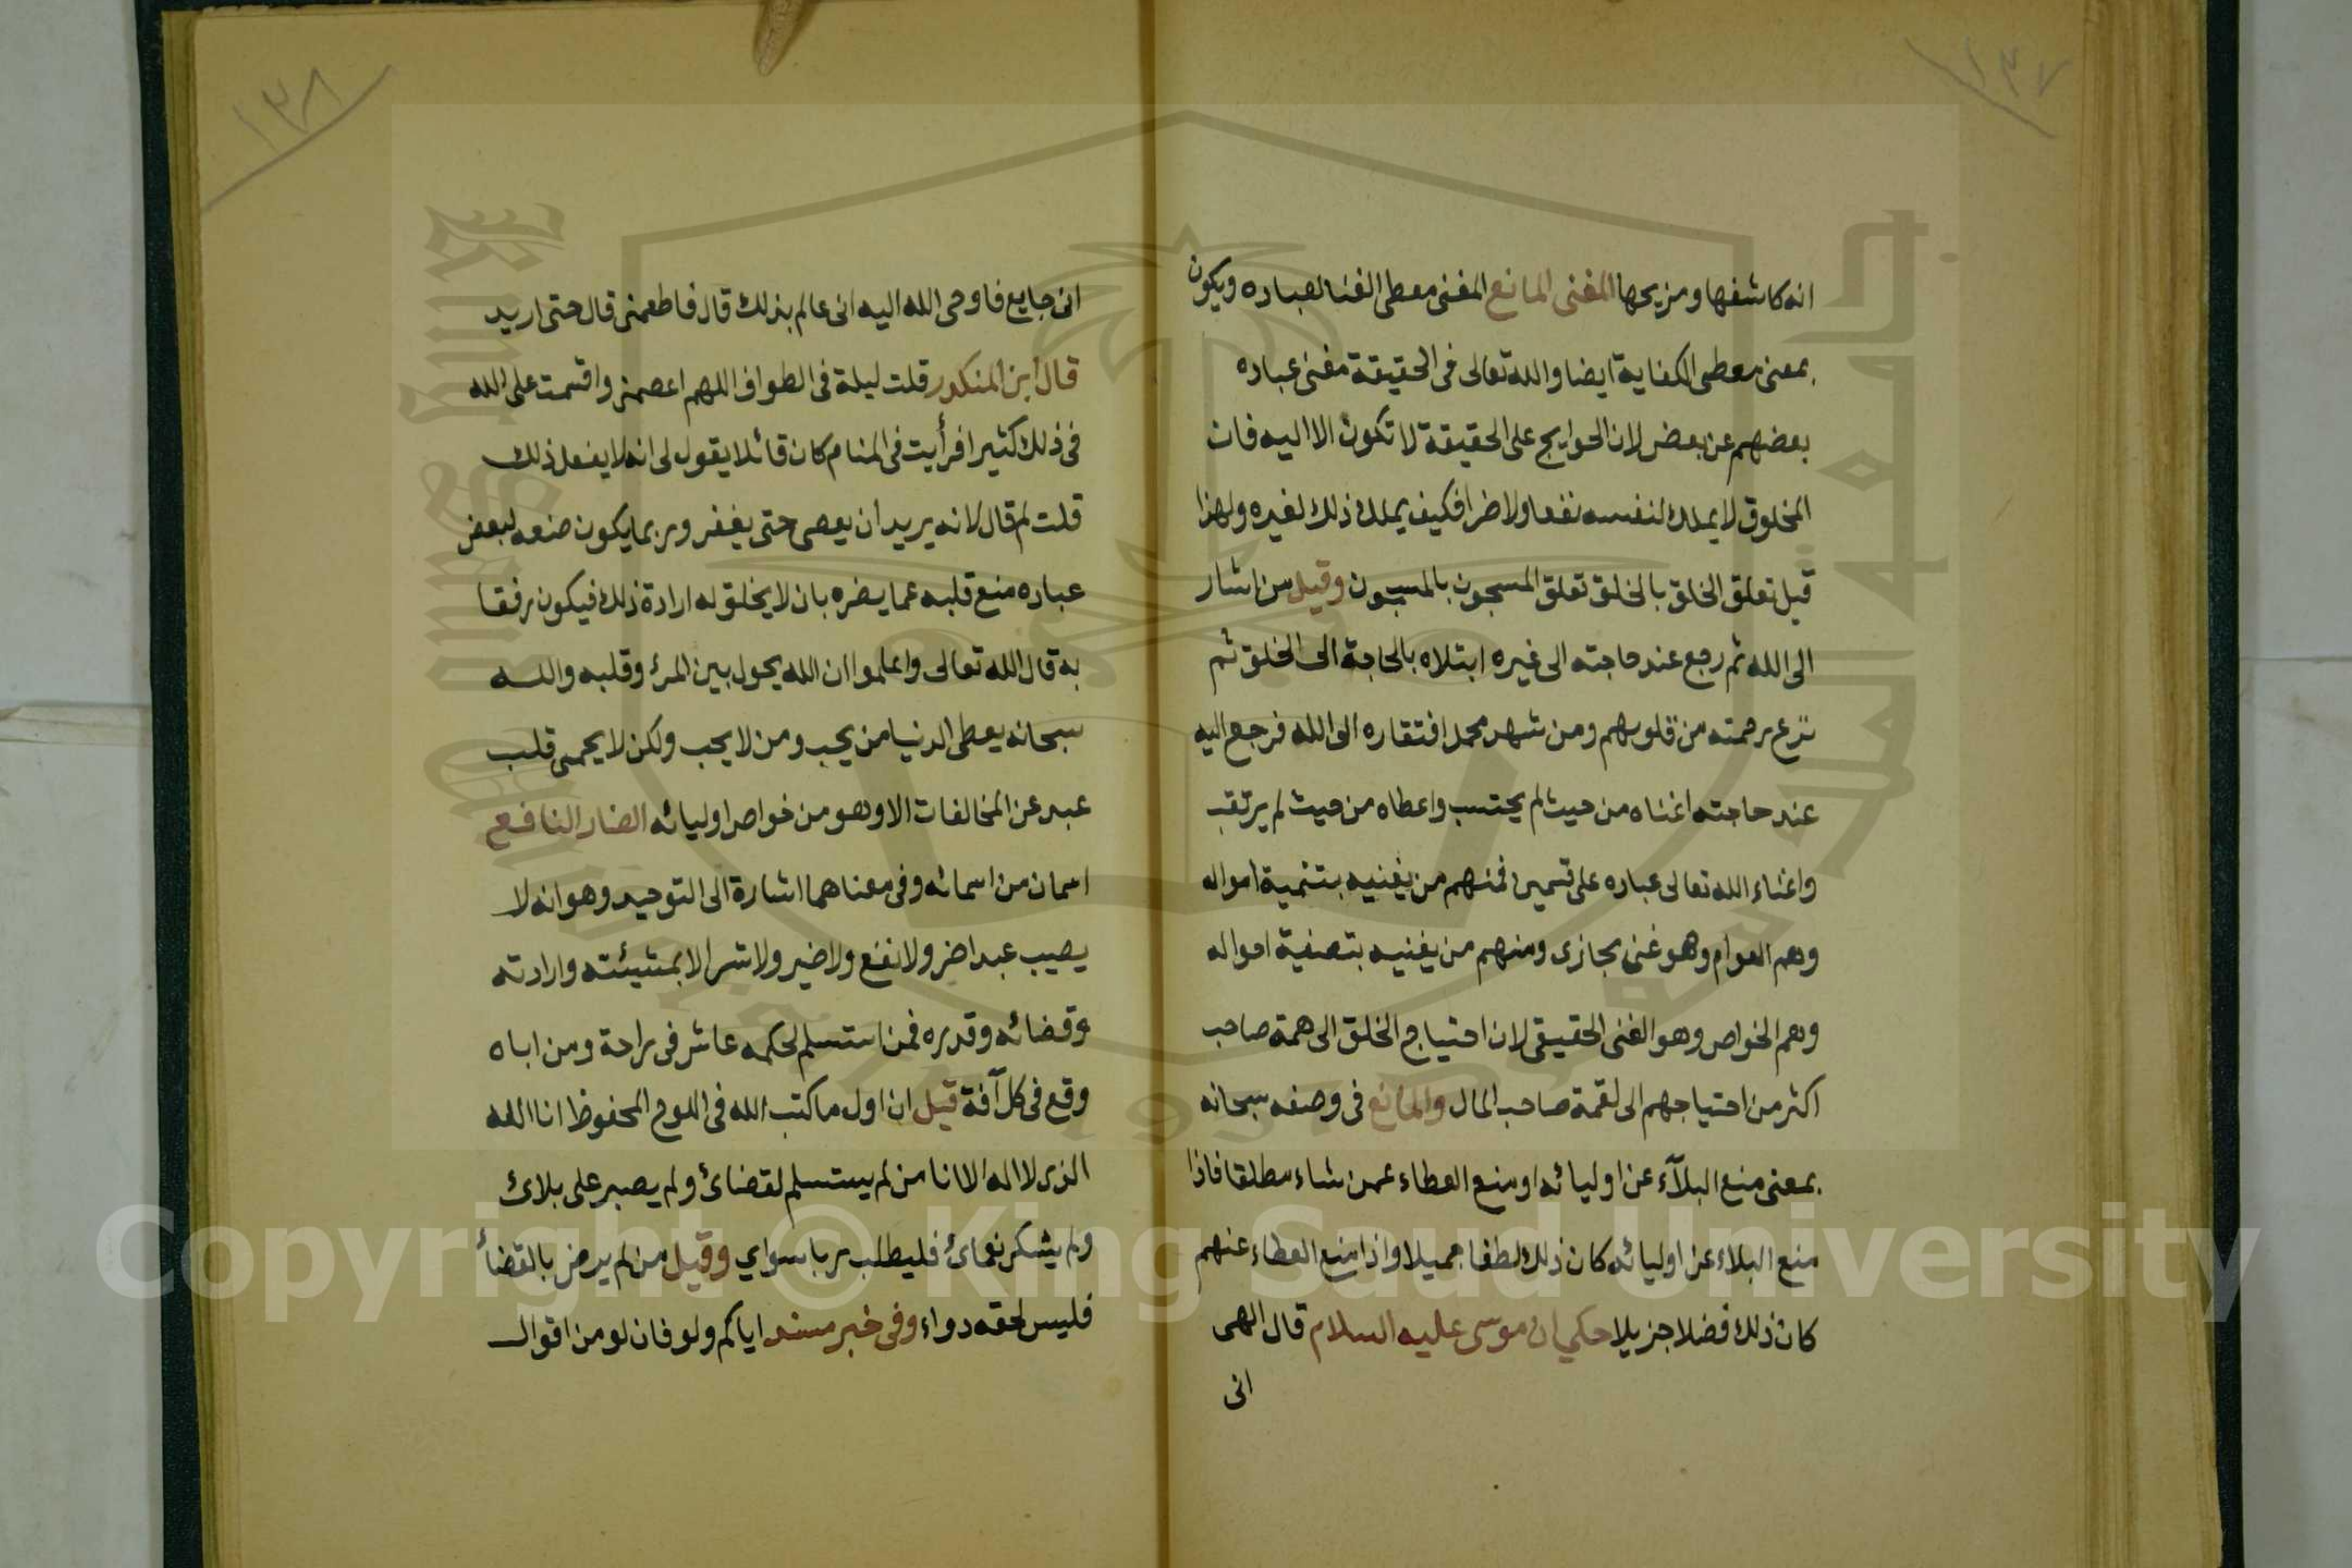 ١٣٧
انه كاشفها ومزيحها المغنى المانع المغنى معطى الغنا لعباده ويكون
بمعنى معطى الكفاية ايضا والله تعالى فى الحقيقة مغنى عباده
بعضهم عن بعض لان الحوايج على الحقيقة لا تكون الا اليه فان
المخلوق لا يملك لنفسه نفعا ولا ضرا فكيف يملك ذلك لغيره ولهذا
قيل تعلق الخلق بالخلق تعلق المسجون بالمسجون وقيل من اشار
الى الله ثم رجع عند حاجته الى غيره ابتلاه بالحاجة الى الخلق ثم
نزع رحمته من قلوبهم ومن شهد محل افتقاره الى الله فرجع اليه
عند حاجته اغناه من حيث لم يحتسب واعطاه من حيث لم يرتقب
واغناء الله تعالى عباده على قسمين فمنهم من يغنيه بتنمية امواله
وهم العوام وهو غنى مجازى ومنهم من يغنيه بتصفية احواله
وهم الخواص وهو الغنى الحقيقى لان احتياج الخلق الى همة صاحب
اكثر من احتياجهم الى لقمة صاحب المال والمانع فى وصفه سبحانه
بمعنى منع البلآء عن اوليائه او منع العطاء عمن شاء مطلقا فاذا
منع البلاء عن اوليائه كان ذلك لطفا جميلا واذا منع العطاء عنهم
كان ذلك فضلا جزيلا حكي ان موسى عليه السلام قال الهى
انى
١٣٨
انى جايع فاوحى الله اليه انى عالم بذلك قال فاطعمنى قال حتى اريد
قال ابن المنكدر قلت ليلة فى الطواف اللهم اعصمنى واقسمت على الله
فى ذلك كثيرا فرأيت فى المنام كان قائلا يقول لى انه لا يفعل ذلك
قلت لم قال لانه يريد ان يعصى حتى يغفر وربما يكون منعه لبعض
عباده منع قلبه عما يضره بان لا يخلق له ارادة ذلك فيكون رفقا
به قال الله تعالى واعلموا ان الله يحول بين المرء وقلبه والله
سبحانه يعطى الدنيا من يحب ومن لا يحب ولكن لا يحمى قلب
عبد عن المخالفات الا وهو من خواص اوليائه الضار النافع
اسمان من اسمائه وفى معناهما اشارة الى التوحيد وهو انه لا
يصيب عبدا ضر ولا نفع ولا خير ولا شر الا بمشيئته وارادته
وقضائه وقدره فمن استسلم لحكمه عاش فى راحة ومن اباه
وقع فى كل آفة قيل ان اول ما كتب الله فى اللوح المحفوظ انا الله
الذى لا اله الا انا من لم يستسلم لقضائ ولم يصبر على بلائ
ولم يشكر نعمائ فليطلب ربا سواي وقيل من لم يرض بالقضأ
فليس لحقه دواء وفى خبر مسند اياكم ولو فان لو من اقوال
Copyright © King Saud University